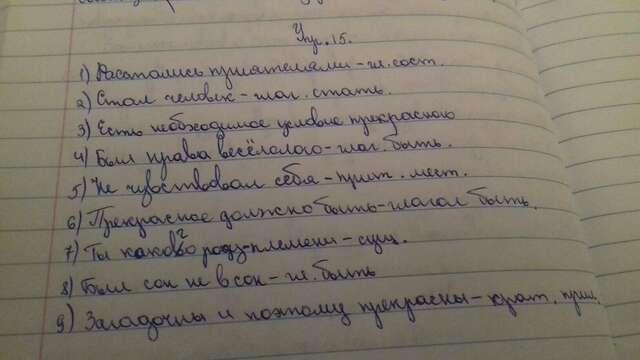 Упр. 15.
1) Расстались приятелями – гл. сост.
2) Стал человек – глаг. стать.
3) Есть необходимое условие прекрасного
4) Был нрава весёлого – глаг. быть.
5) Не чувствовал себя – прит. мест.
6) Прекрасное должно быть – глагол быть.
7) Ты какого роду-племени – сущ.
8) Был сон не в сон – гл. быть
9) Загадочны и поэтому прекрасны – крат. прил.